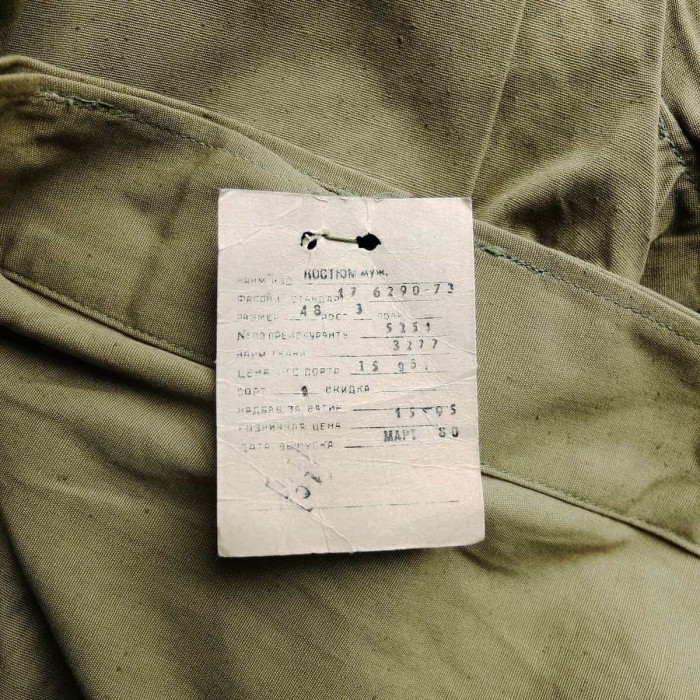 НАИМ ИЗД КОСТЮМ муж.
ФАСОН СТАНДАР 17 6290-73
РАЗМЕР 48 РОСТ 3 ПОЛН
№ ПО ПРЕЙСКУРАНТУ 5251
НАИМ ТКАНИ 3277
ЦЕНА 1ГО СОРТА 15 95.
СОРТ 1 СКИДКА
НАДБАВ ЗА ВАТИН
РОЗНИЧНАЯ ЦЕНА 15-95
ДАТА ВЫПУСКА МАРТ 80